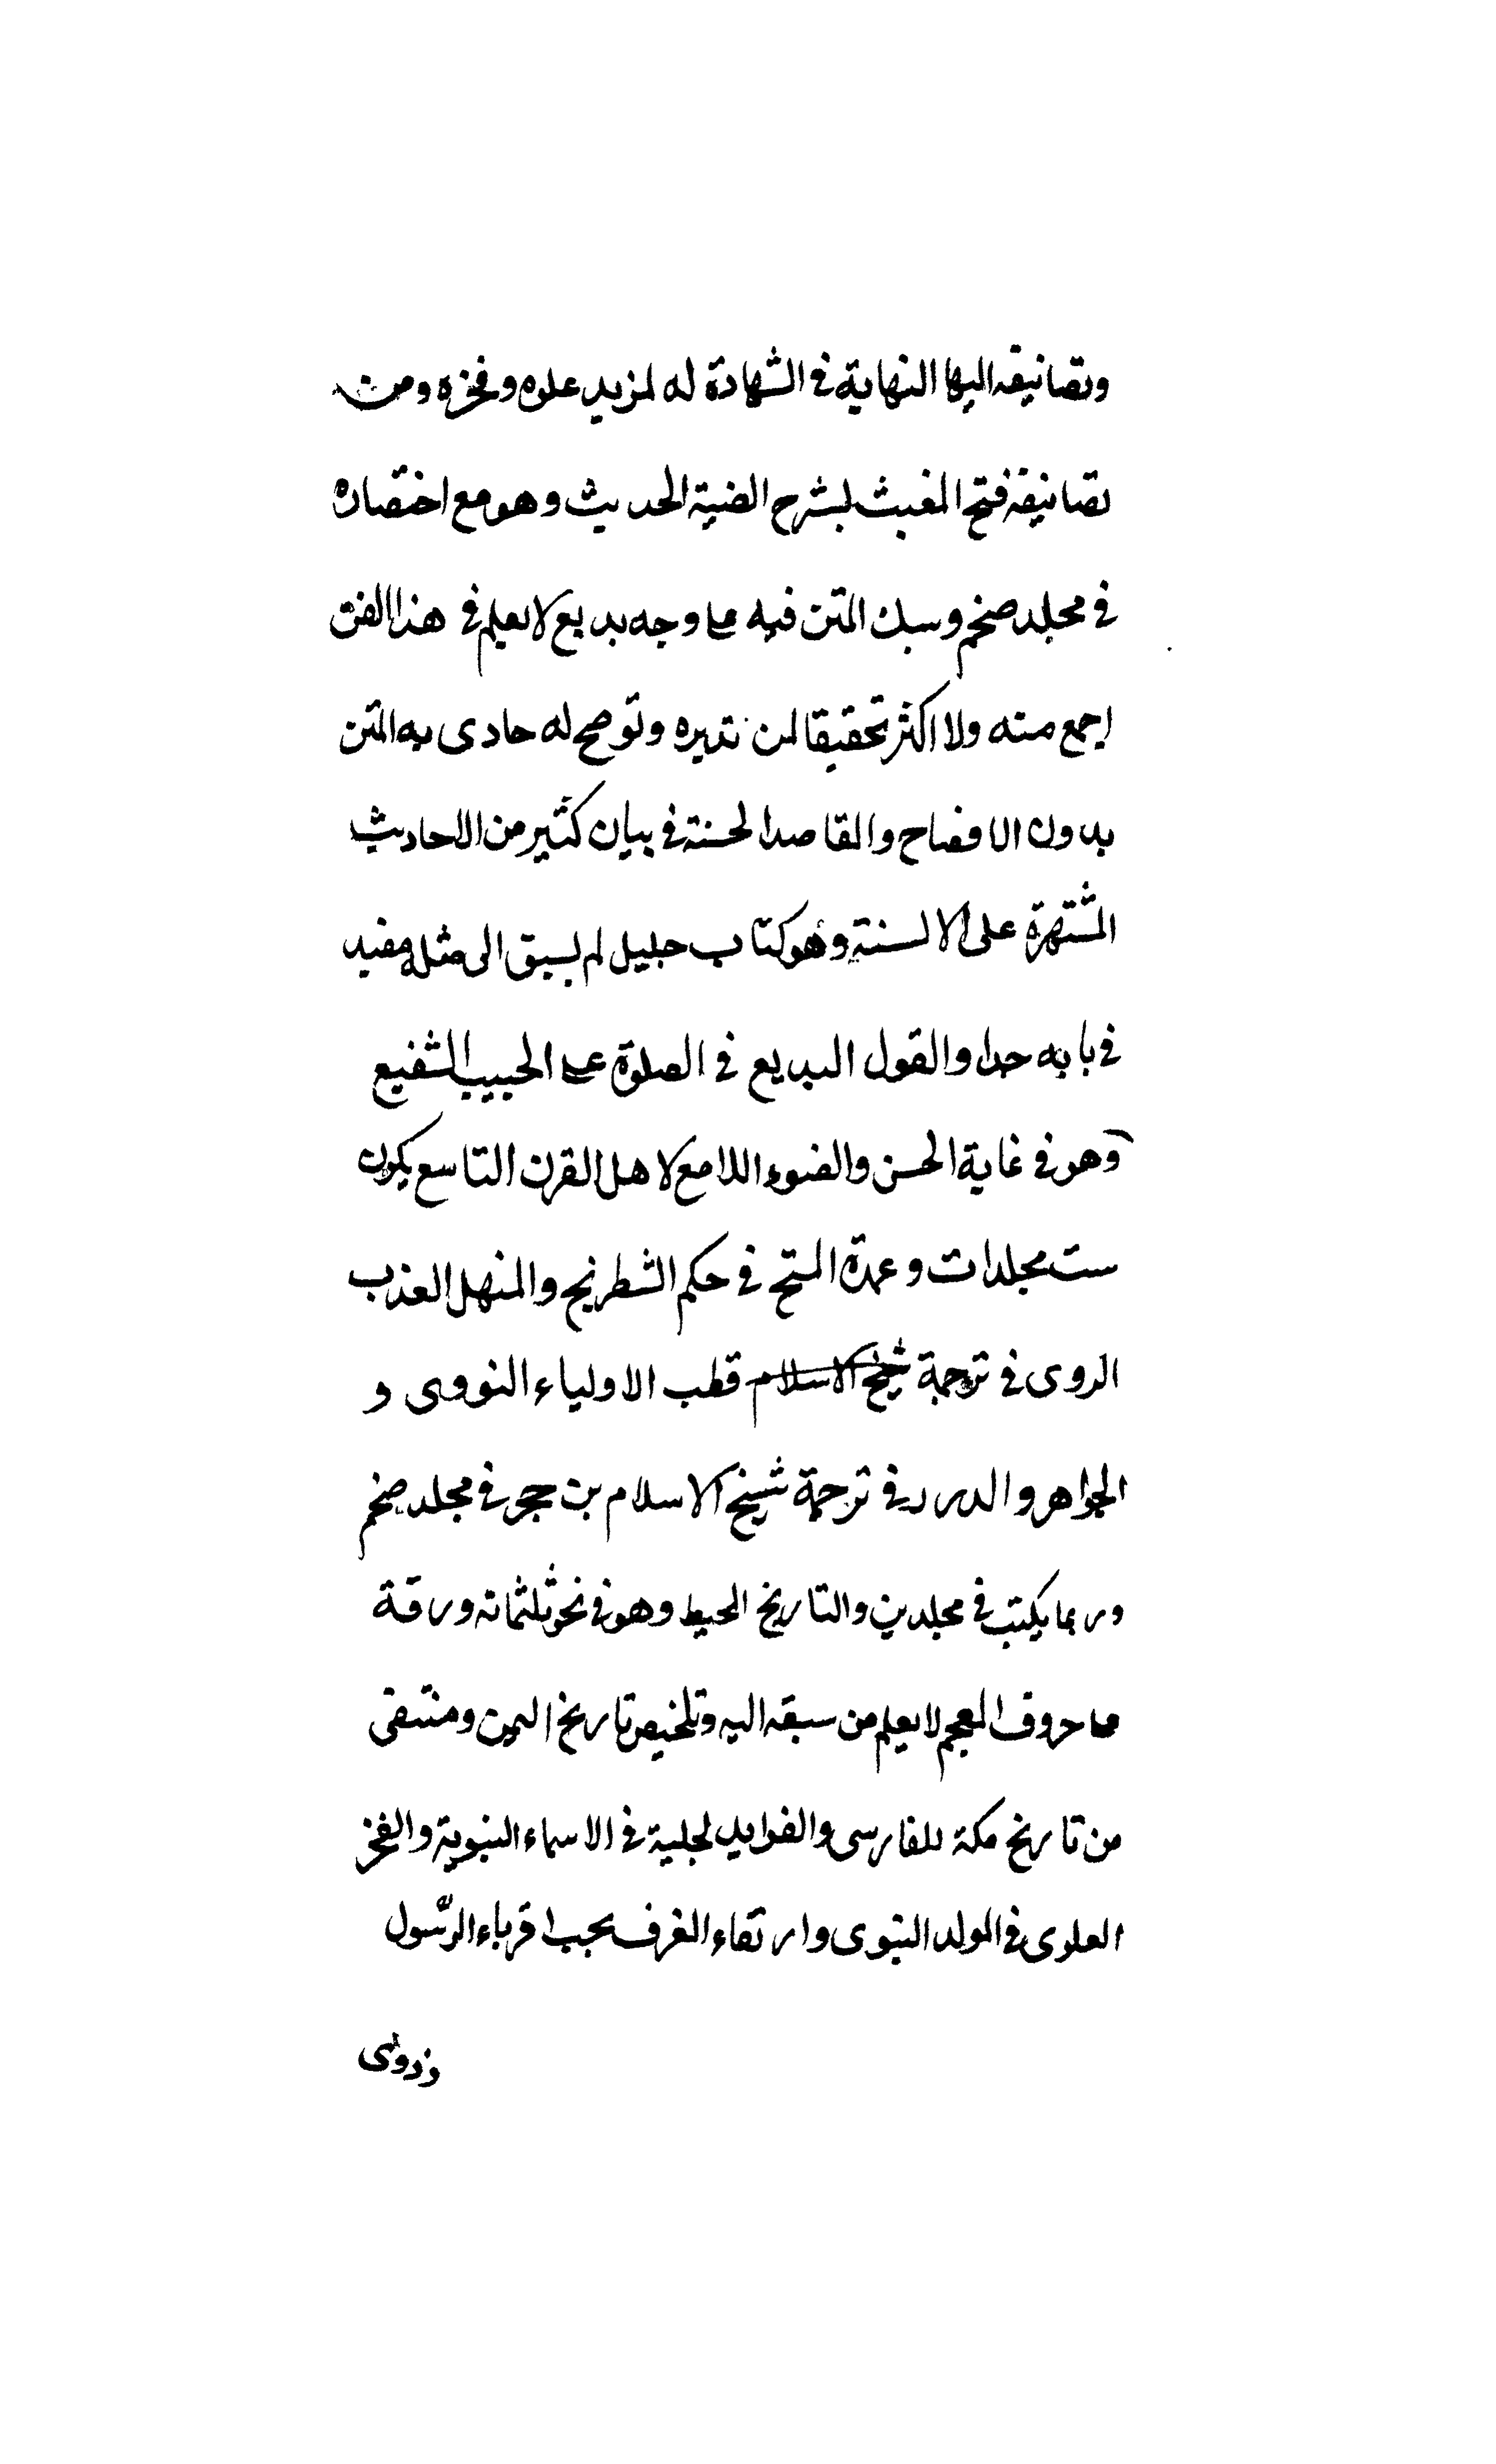 وتصانيفه اليها النهاية في الشهادة له لمزيد علوه وفخره ومن
تصانيفه فتح المغيث بشرح الفية الحديث وهو مع اختصاره
في مجلد ضخم وسبك المتن فيه على وجه بديع لا يعلم في هذا الفن
اجمع منه ولا اكثر تحقيقا لمن تدبره وتوضح له حاذى به المتن
بدون الافصاح والمقاصد الحسنة في بيان كثير من الاحاديث
المشتهرة على الالسنة وهو كتاب جليل لم يسبق الى مثله مفيد
في بابه جدا والقول البديع في الصلوة على الحبيب الشفيع
وهو في غاية الحسن والضوء اللامع لاهل القرن التاسع يكون
ست مجلدات وعمدة المحتج في حكم الشطرنج والمنهل العذب
الروى في ترجمة شيخ الاسلام قطب الاولياء النووى و
الجواهر والدرر في ترجمة شيخ الاسلام بن حجر في مجلد ضخم
وربما يكتب في مجلدين والتاريخ المحيط وهو في نحو ثلثمائه ورقة
على حروف المعجم لا يعلم من سبقه اليه وتلخيص تاريخ اليمن ومنتقى
من تاريخ مكة للفارسى والفوايد الجلية في الاسماء النبوية والفخر
العلوى في المولد النبوى وارتقاء الغرف بحب اقرباء الرسول
وذوى